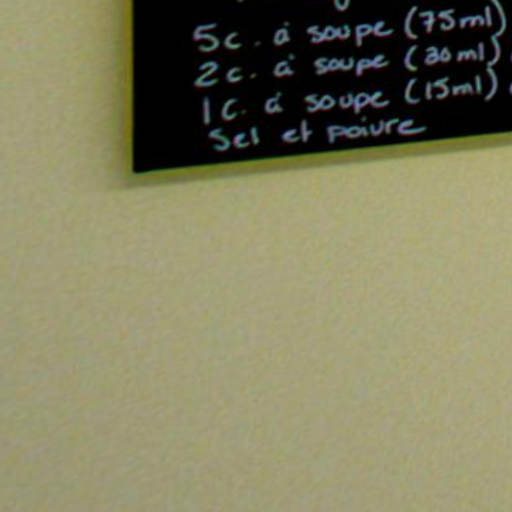 5c. à soupe (75ml)
2c. à soupe (30ml)
1c. à soupe (15ml)
Sel et poivre